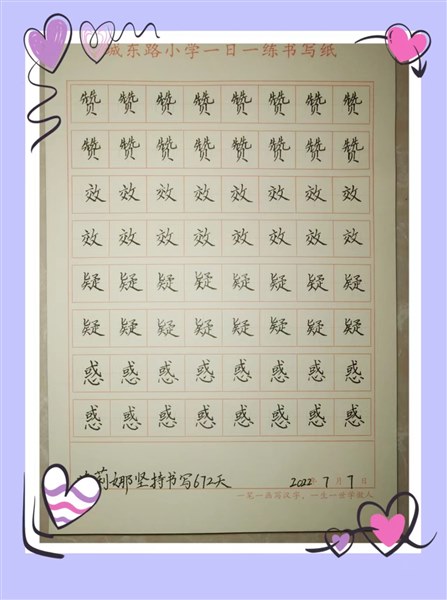 城东路小学一日一练书写纸
赞赞赞赞赞赞赞赞
赞赞赞赞赞赞赞赞
效效效效效效效效
效效效效效效效效
疑疑疑疑疑疑疑疑
疑疑疑疑疑疑疑疑
惑惑惑惑惑惑惑惑
惑惑惑惑惑惑惑惑
莉娜坚持书写672天 2022年7月7日
一笔一画写汉字，一生一世学做人